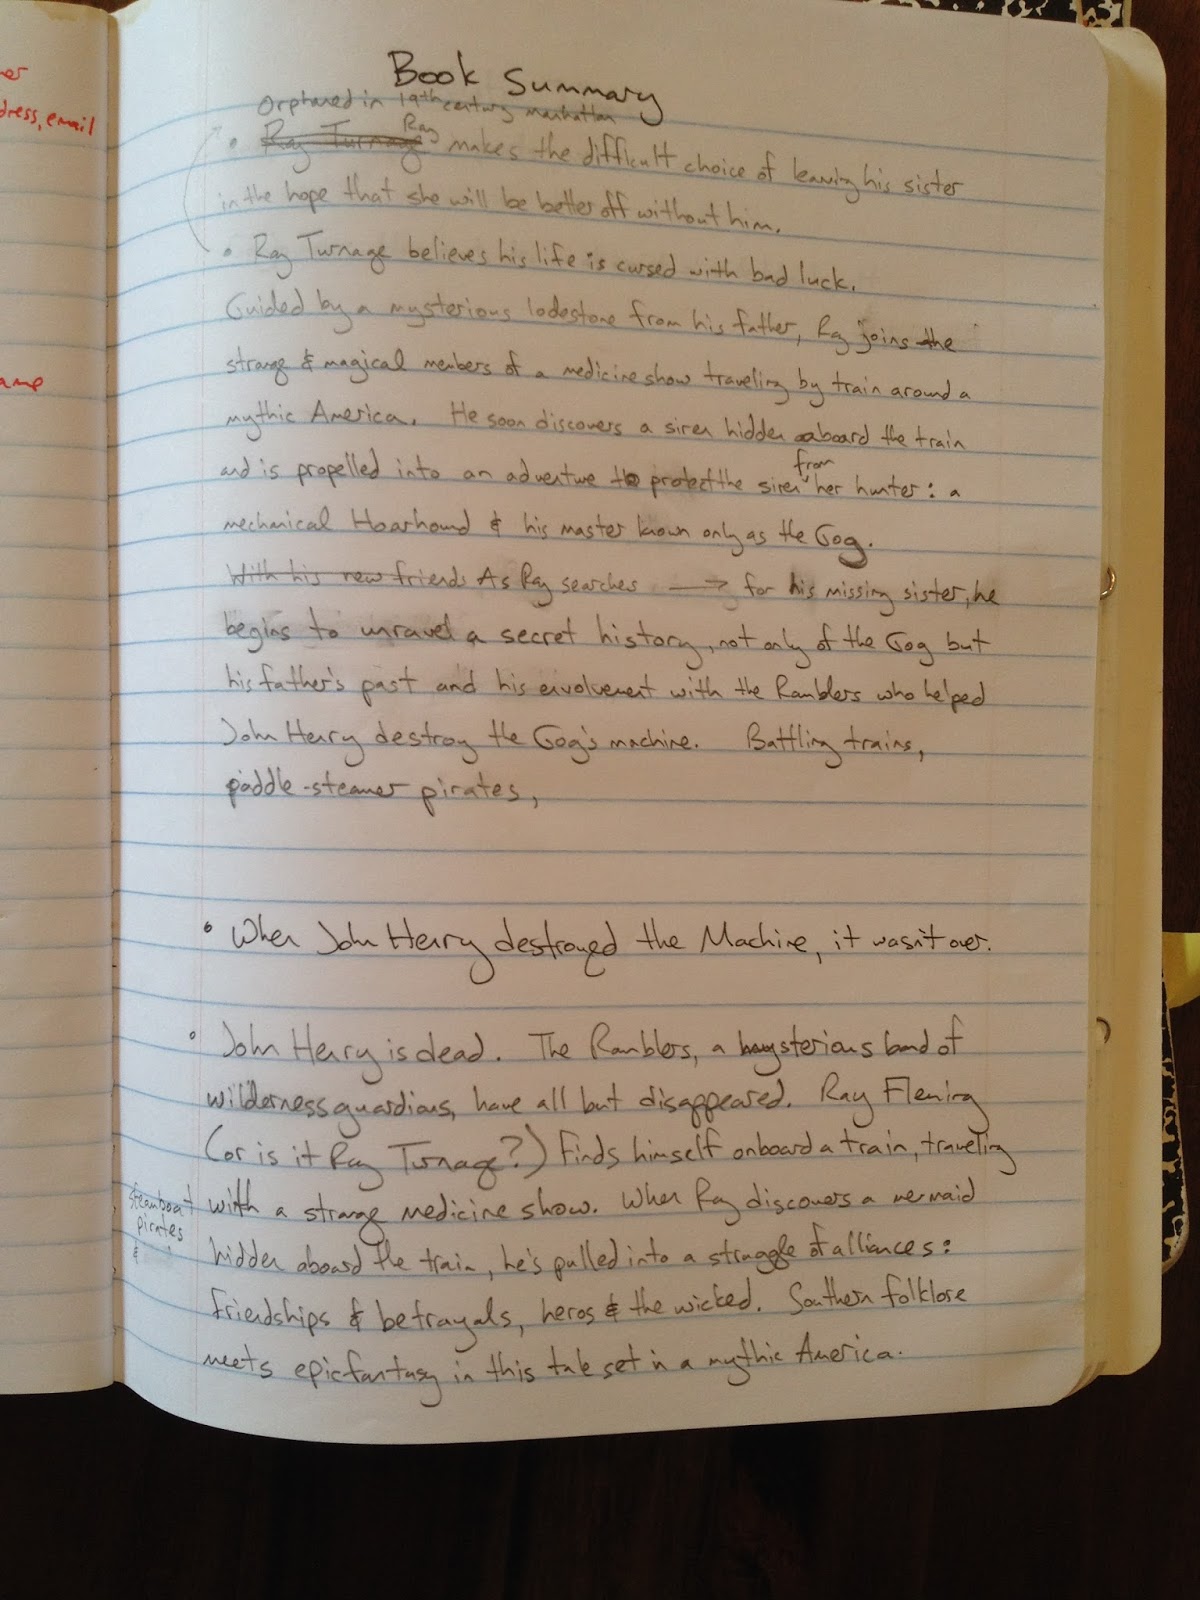 er
dress, email
ame
Book Summary
Orphaned in 19th century manhattan
• Ray Turnage Ray makes the difficult choice of leaving his sister
in the hope that she will be better off without him.
• Ray Turnage believes his life is cursed with bad luck.
Guided by a mysterious lodestone from his father, Ray joins the
strange & magical members of a medicine show traveling by train around a
mythic America. He soon discovers a siren hidden aboard the train
and is propelled into an adventure to protect the siren from her hunter: a
mechanical Hoarhound & his master known only as the Gog.
With his new friends As Ray searches → for his missing sister, he
begins to unravel a secret history, not only of the Gog but
his father's past and his envolvement with the Ramblers who helped
John Henry destroy the Gog's machine. Battling trains,
paddle-steamer pirates,
• When John Henry destroyed the Machine, it wasn't over.
• John Henry is dead. The Ramblers, a mysterious band of
wilderness guardians, have all but disappeared. Ray Fleming
(or is it Ray Turnage?) finds himself onboard a train, traveling
with a strange medicine show. When Ray discovers a mermaid
hidden aboard the train, he's pulled into a struggle of alliances:
friendships & betrayals, heros & the wicked. Southern folklore
meets epic fantasy in this tale set in a mythic America.
steamboat
pirates
&